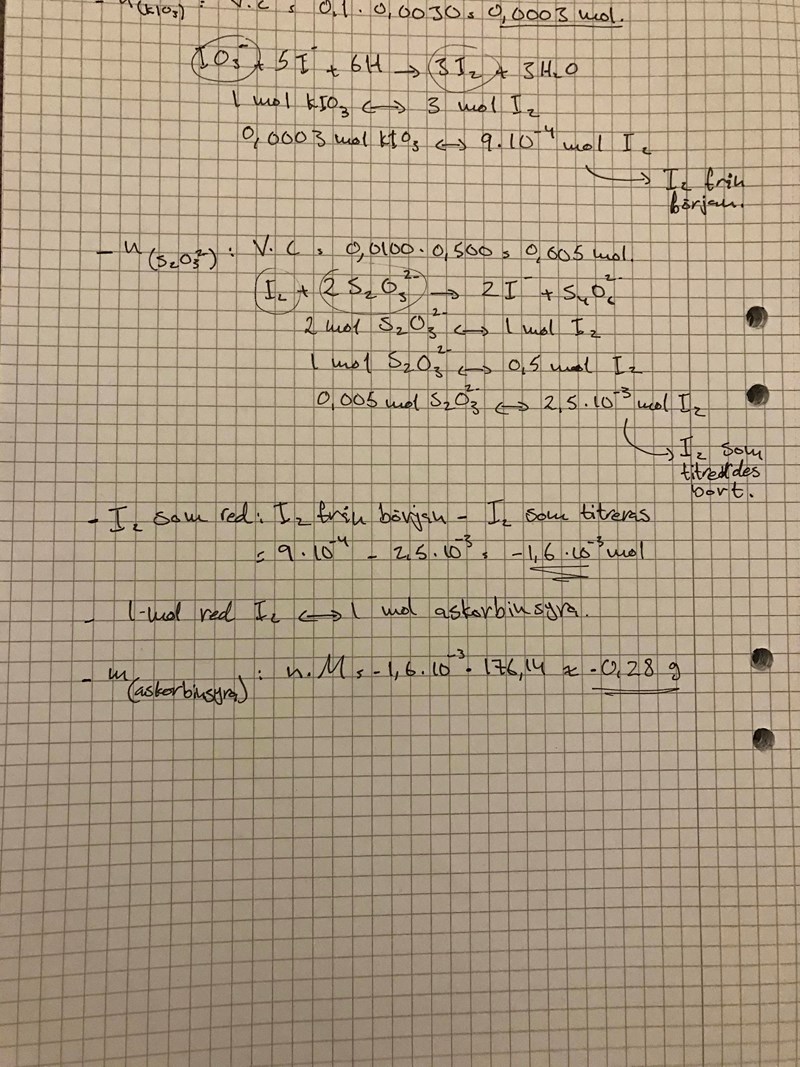 - n(KIO3) : V.C = 0,1 · 0,0030 = 0,0003 mol.
IO3⁻ + 5I⁻ + 6H → 3I2 + 3H2O
1 mol kIO3 ↔ 3 mol I2
0,0003 mol kIO3 ↔ 9·10⁻⁴ mol I2
→ I2 från
början.
- n(S2O3²⁻) : V.C = 0,0100 · 0,500 = 0,005 mol.
I2 + 2 S2O3²⁻ → 2I⁻ + S4O6²⁻
2 mol S2O3²⁻ ↔ 1 mol I2
1 mol S2O3²⁻ ↔ 0,5 mol I2
0,005 mol S2O3²⁻ ↔ 2,5·10⁻³ mol I2
→ I2 som
titrerdes
bort.
- I2 som red: I2 från början - I2 som titreras
= 9·10⁻⁴ - 2,5·10⁻³ = -1,6·10⁻³ mol
- 1 mol red I2 ↔ 1 mol askorbinsyra.
- m(askorbinsyra) : n.M = -1,6·10⁻³ · 176,14 ≈ -0,28 g